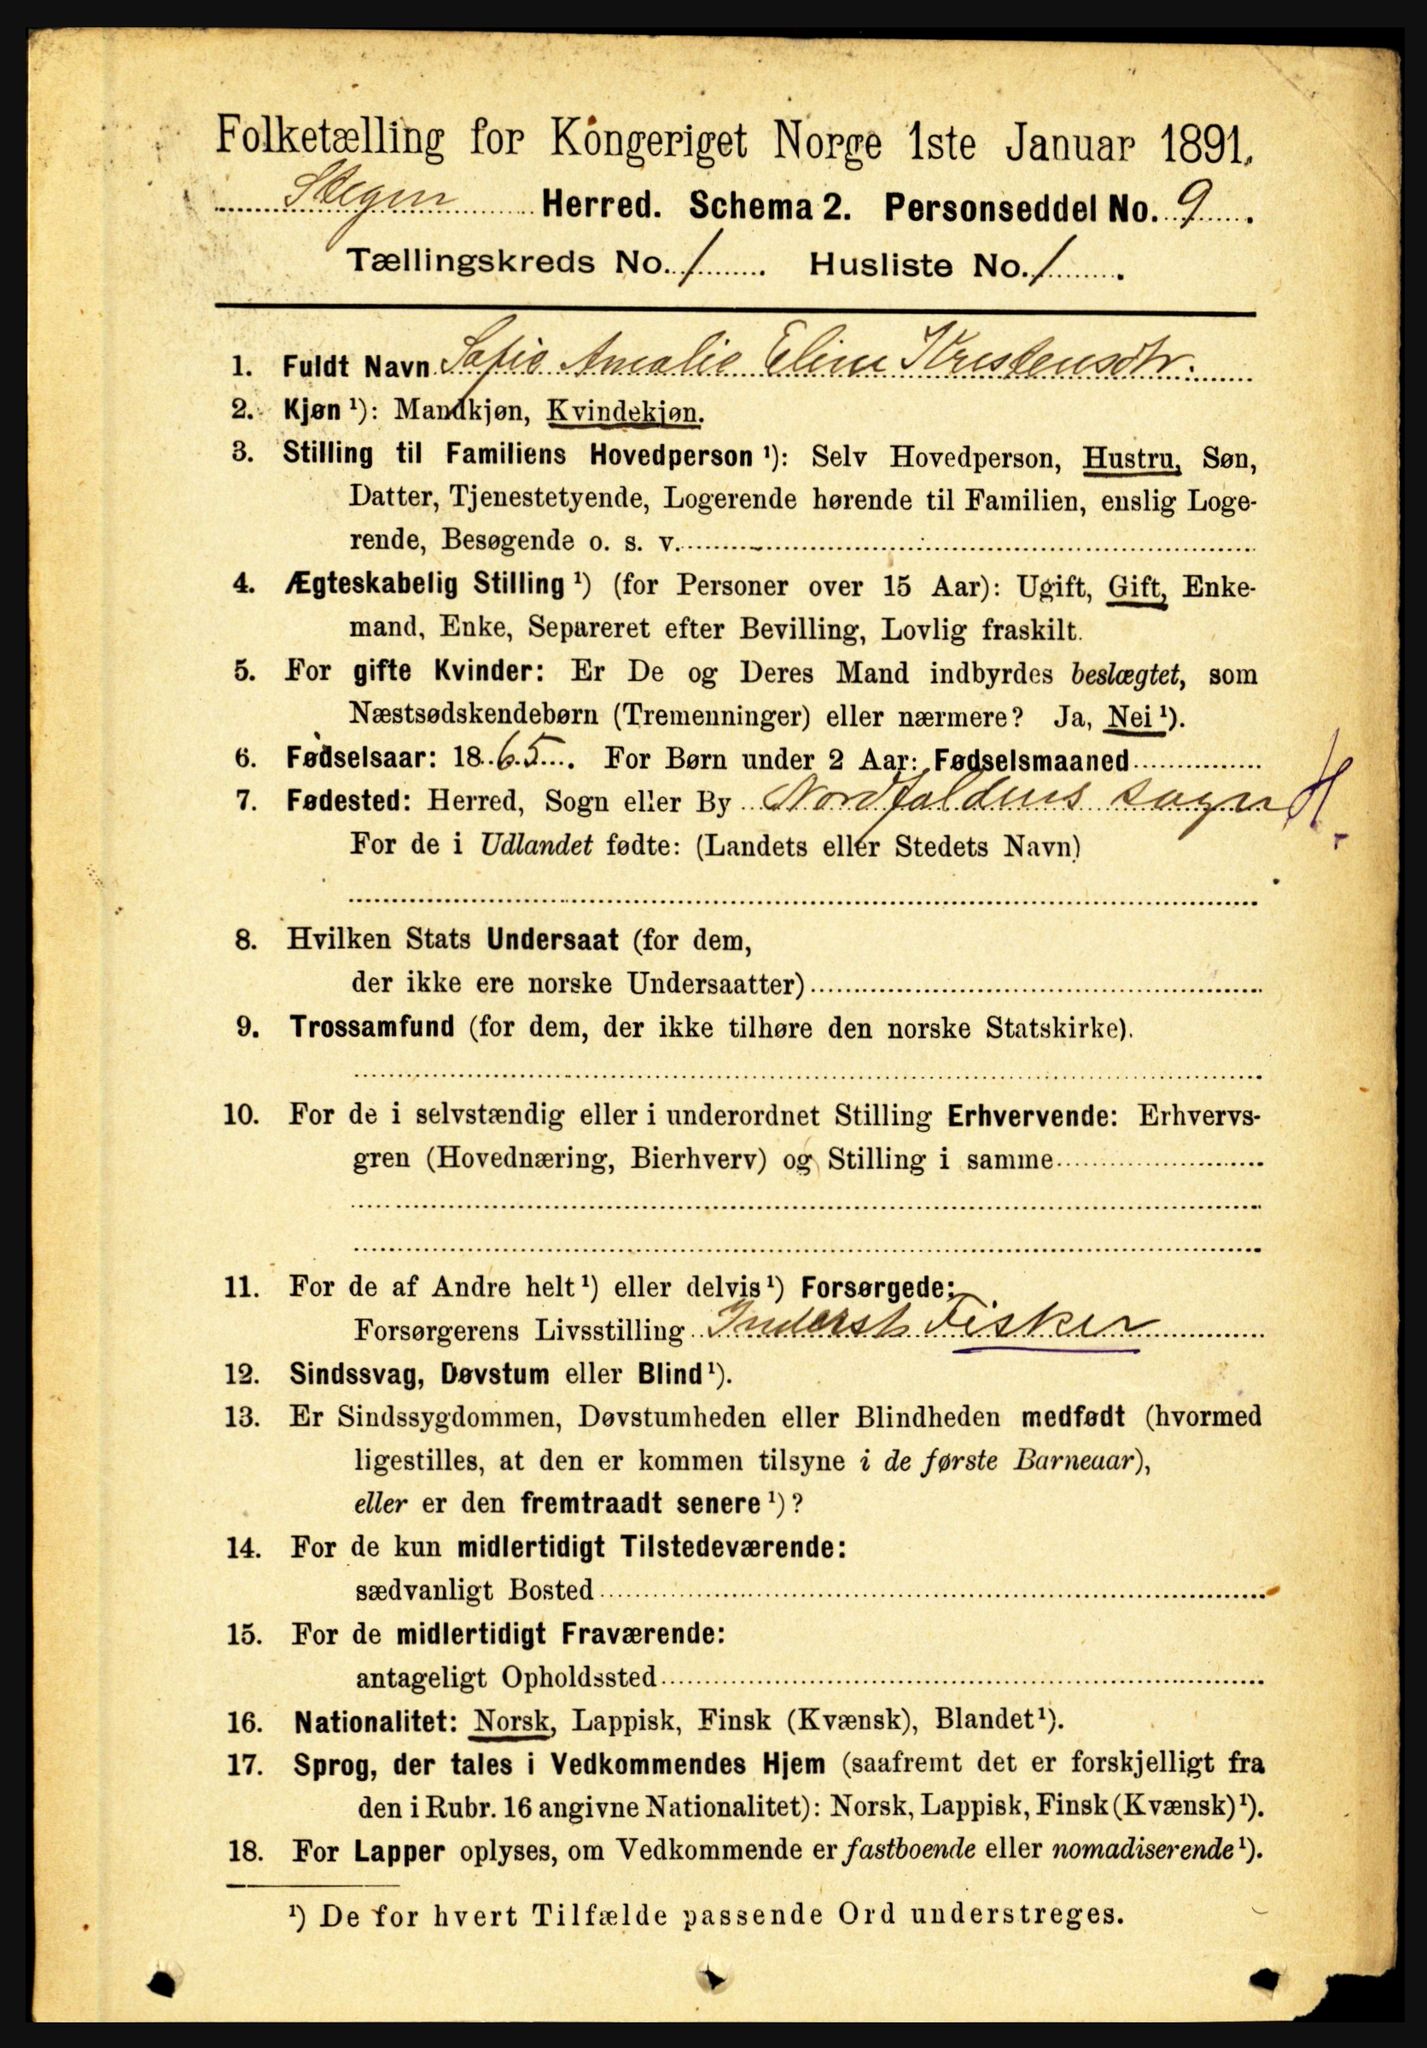 Folketælling for Kongeriget Norge 1ste Januar 1891.
Stegen Herred. Schema 2. Personseddel No. 9.
Tællingskreds No. 1. Husliste No. 1.
1. Fuldt Navn Sofie Amalie Eline Kristensdtr.
2. Kjøn ¹): Mandkjøn, Kvindekjøn.
3. Stilling til Familiens Hovedperson ¹): Selv Hovedperson, Hustru, Søn,
Datter, Tjenestetyende, Logerende hørende til Familien, enslig Loge-
rende, Besøgende o. s. v.
4. Ægteskabelig Stilling ¹) (for Personer over 15 Aar): Ugift, Gift, Enke-
mand, Enke, Separeret efter Bevilling, Lovlig fraskilt.
5. For gifte Kvinder: Er De og Deres Mand indbyrdes beslægtet, som
Næstsødskendebørn (Tremenninger) eller nærmere? Ja, Nei ¹).
6. Fødselsaar: 1865. For Børn under 2 Aar: Fødselsmaaned
7. Fødested: Herred, Sogn eller By Nordfoldens sogn H.
For de i Udlandet fødte: (Landets eller Stedets Navn)
8. Hvilken Stats Undersaat (for dem,
der ikke ere norske Undersaatter)
9. Trossamfund (for dem, der ikke tilhøre den norske Statskirke).
10. For de i selvstændig eller i underordnet Stilling Erhvervende: Erhvervs-
gren (Hovednæring, Bierhverv) og Stilling i samme
11. For de af Andre helt ¹) eller delvis ¹) Forsørgede:
Forsørgerens Livsstilling Inderst Fisker
12. Sindssvag, Døvstum eller Blind ¹).
13. Er Sindssygdommen, Døvstumheden eller Blindheden medfødt (hvormed
ligestilles, at den er kommen tilsyne i de første Barneaar),
eller er den fremtraadt senere ¹)?
14. For de kun midlertidigt Tilstedeværende:
sædvanligt Bosted
15. For de midlertidigt Fraværende:
antageligt Opholdssted
16. Nationalitet: Norsk, Lappisk, Finsk (Kvænsk), Blandet ¹).
17. Sprog, der tales i Vedkommendes Hjem (saafremt det er forskjelligt fra
den i Rubr. 16 angivne Nationalitet): Norsk, Lappisk, Finsk (Kvænsk) ¹).
18. For Lapper oplyses, om Vedkommende er fastboende eller nomadiserende ¹).
¹) De for hvert Tilfælde passende Ord understreges.